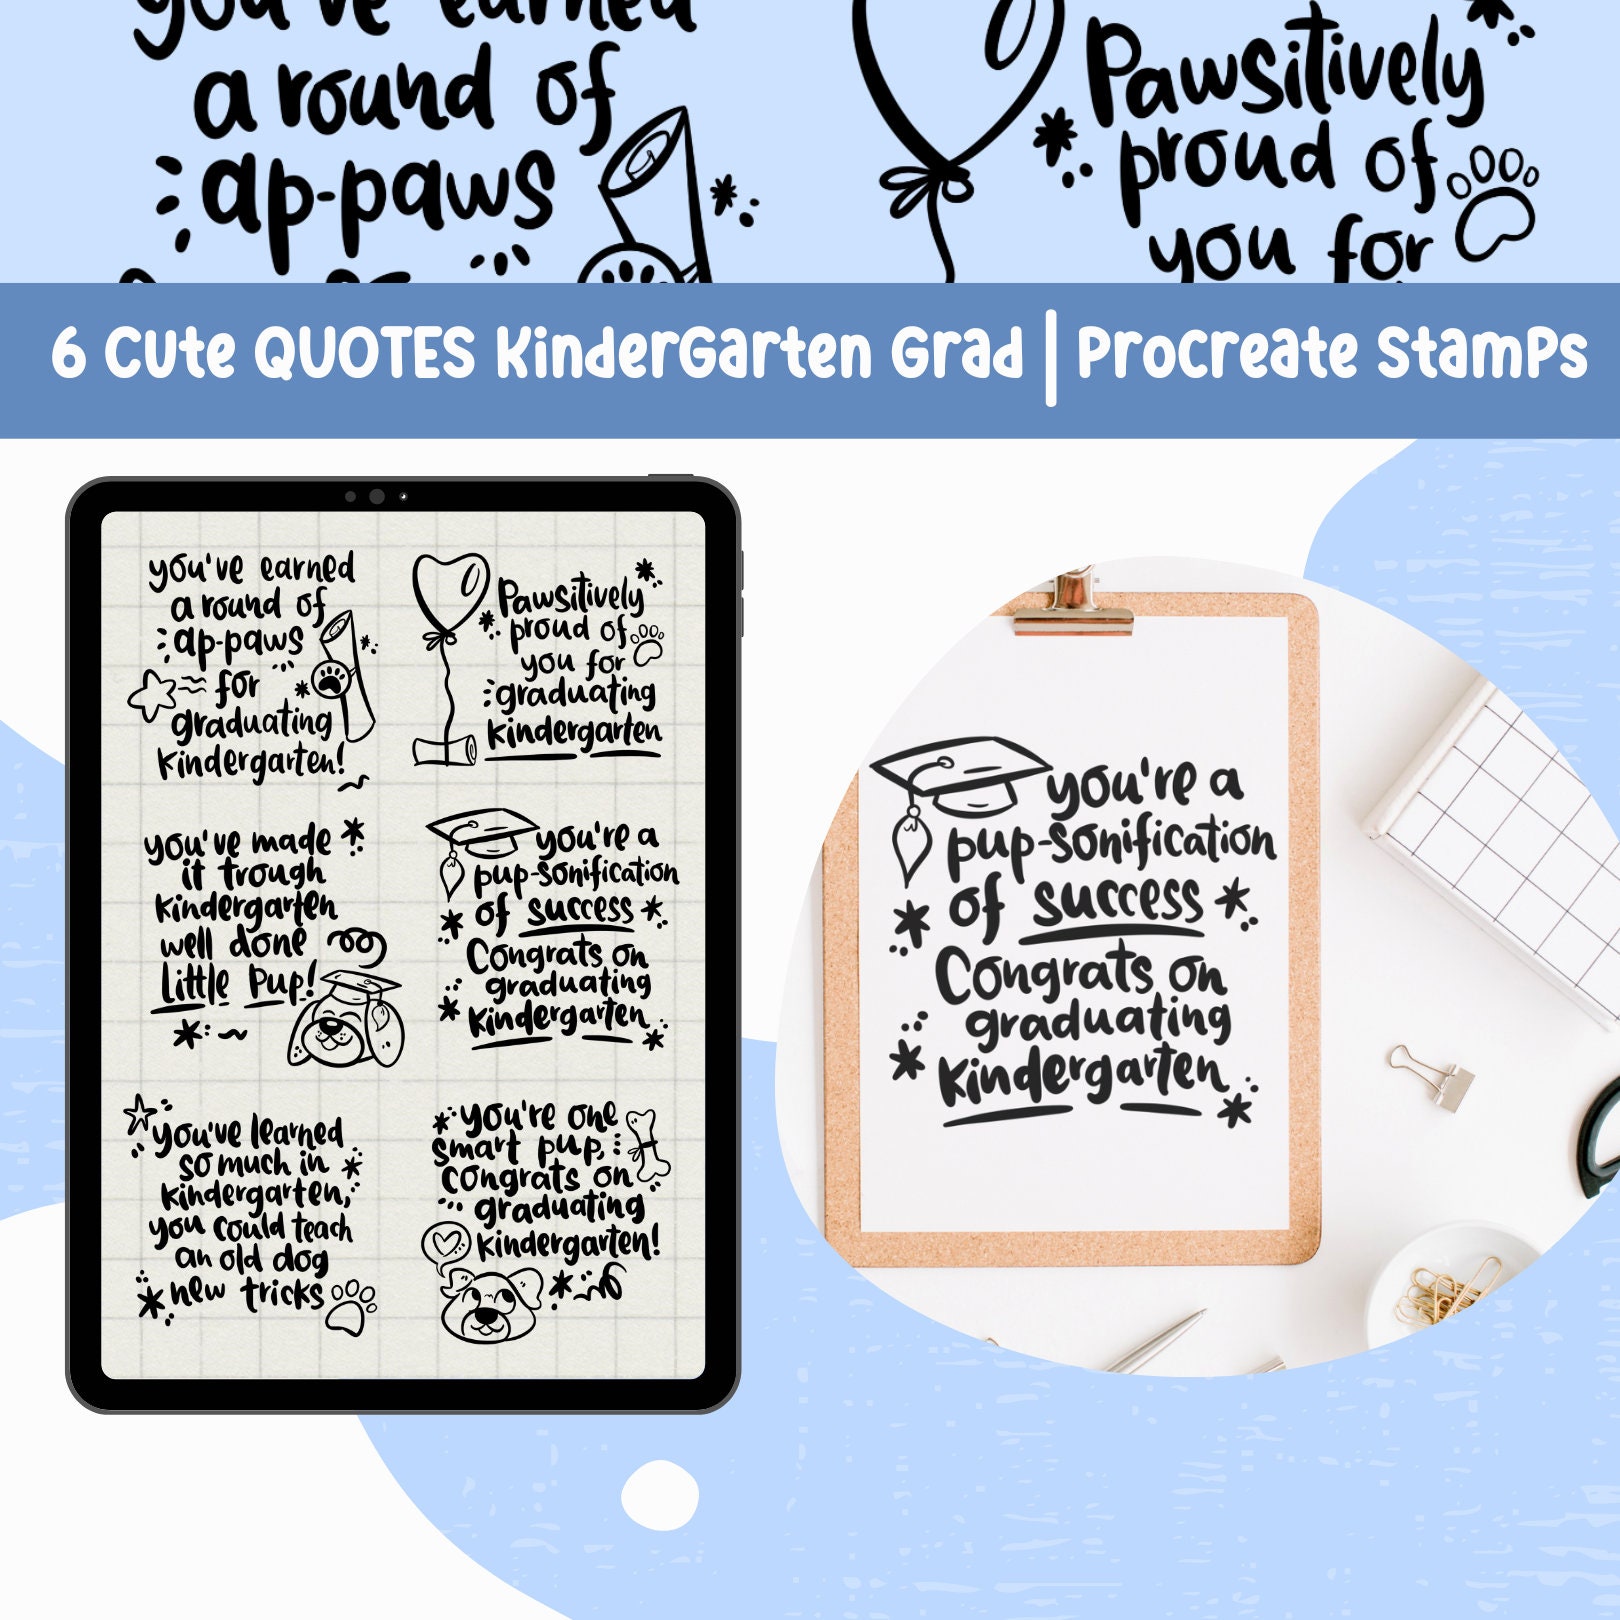 you've earned
a round of
ap-paws
Pawsitively
proud of
you for
6 Cute QUOTES KinderGarten Grad | Procreate Stamps
you've earned
a round of
ap-paws
for
graduating
kindergarten!
Pawsitively
proud of
you for
graduating
kindergarten
you've made
it trough
kindergarten
well done
Little Pup!
you're a
pup-sonification
of success
Congrats on
graduating
kindergarten
you've learned
so much in
kindergarten,
you could teach
an old dog
new tricks
you're one
smart pup,
congrats on
graduating
kindergarten!
you're a
pup-sonification
of success
Congrats on
graduating
kindergarten